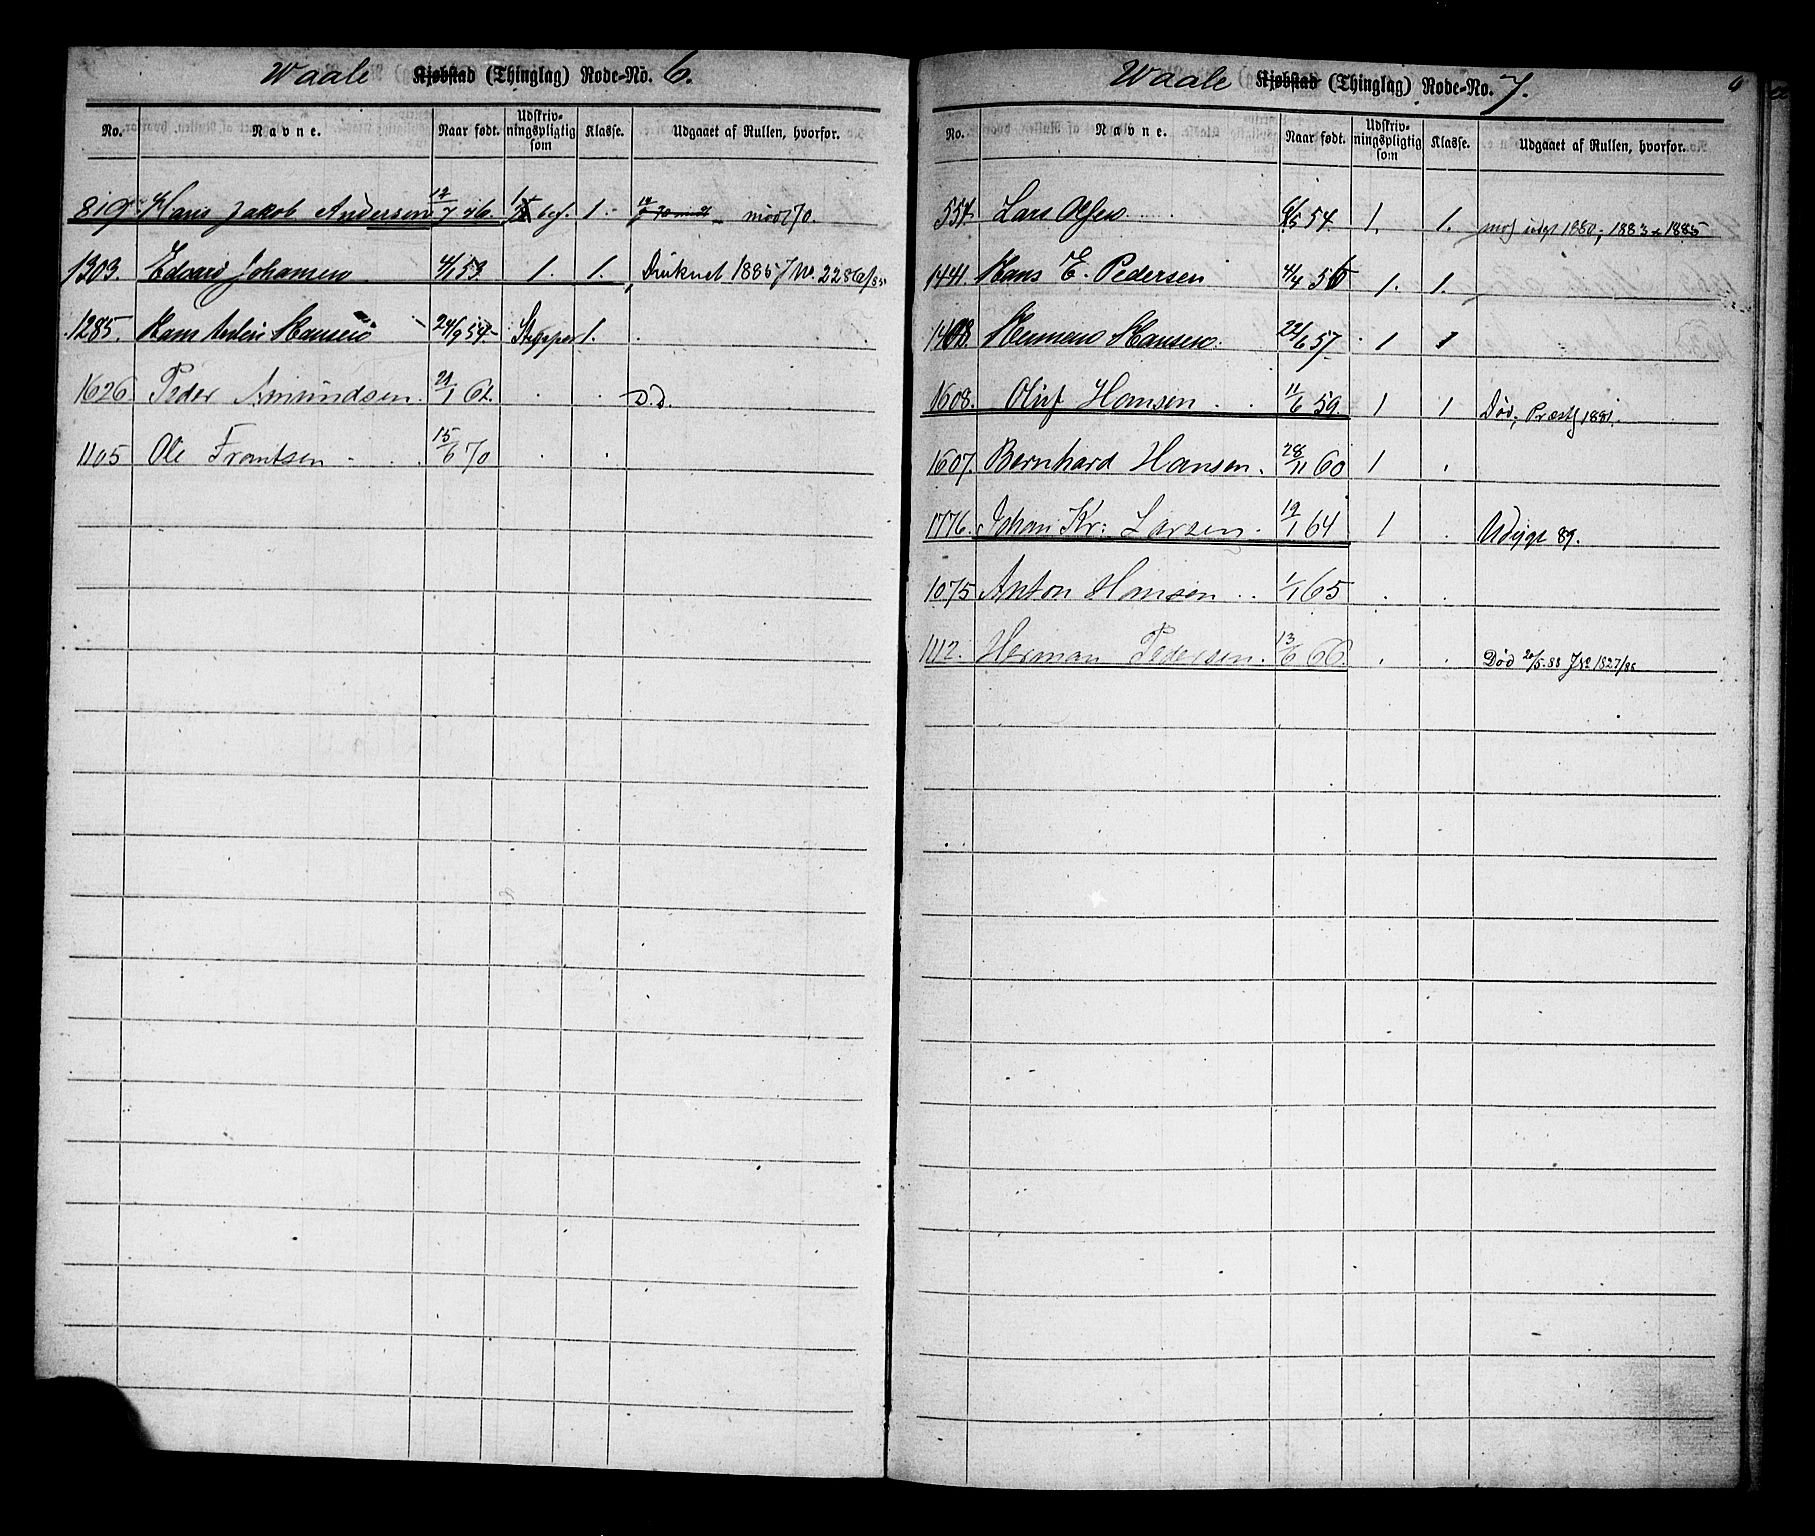 Waale Kjøbstad (Thinglag) Rode-No. 6.
No. Navne. Naar født. Udskrivningspligtig som Klasse. Udgaaet af Rullen, hvorfor.
819 Hans Jakob Andersen 12/7 46. bef. 1. mod 170.
1303. Edvard Johansen 4/1 53. 1. 1. Druknet 1885 J No. 2286/85
1285. Hans Hansen 24/9 54 1.
1626 Peder Amundsen. 1 62. D.D.
1105 Ole Frantsen 15/6 70
Waale Kjøbstad (Thinglag) Rode-No. 7.
No. Navne. Naar født. Udskrivningspligtig som Klasse. Udgaaet af Rullen, hvorfor.
557. Lars Olsen 54. 1. 1. 1880, 1883 1885
1441. Hans E. Pedersen 4/4 56 1. 1.
1408. Hansen. 22/6 57 1 1
1608. Oluf Hansen 11/6 59 1 1 Død, Præstj 1881.
1607. Bernhard Hansen. 28/11 60 1 .
1776. Johan Kr: Larsen 19/1 64 1 . 89.
1075 Anton Hansen 1/1 65 . .
1112. Herman Pedersen. 13/6 66. . . Død 20/5.88 J No 1827/88